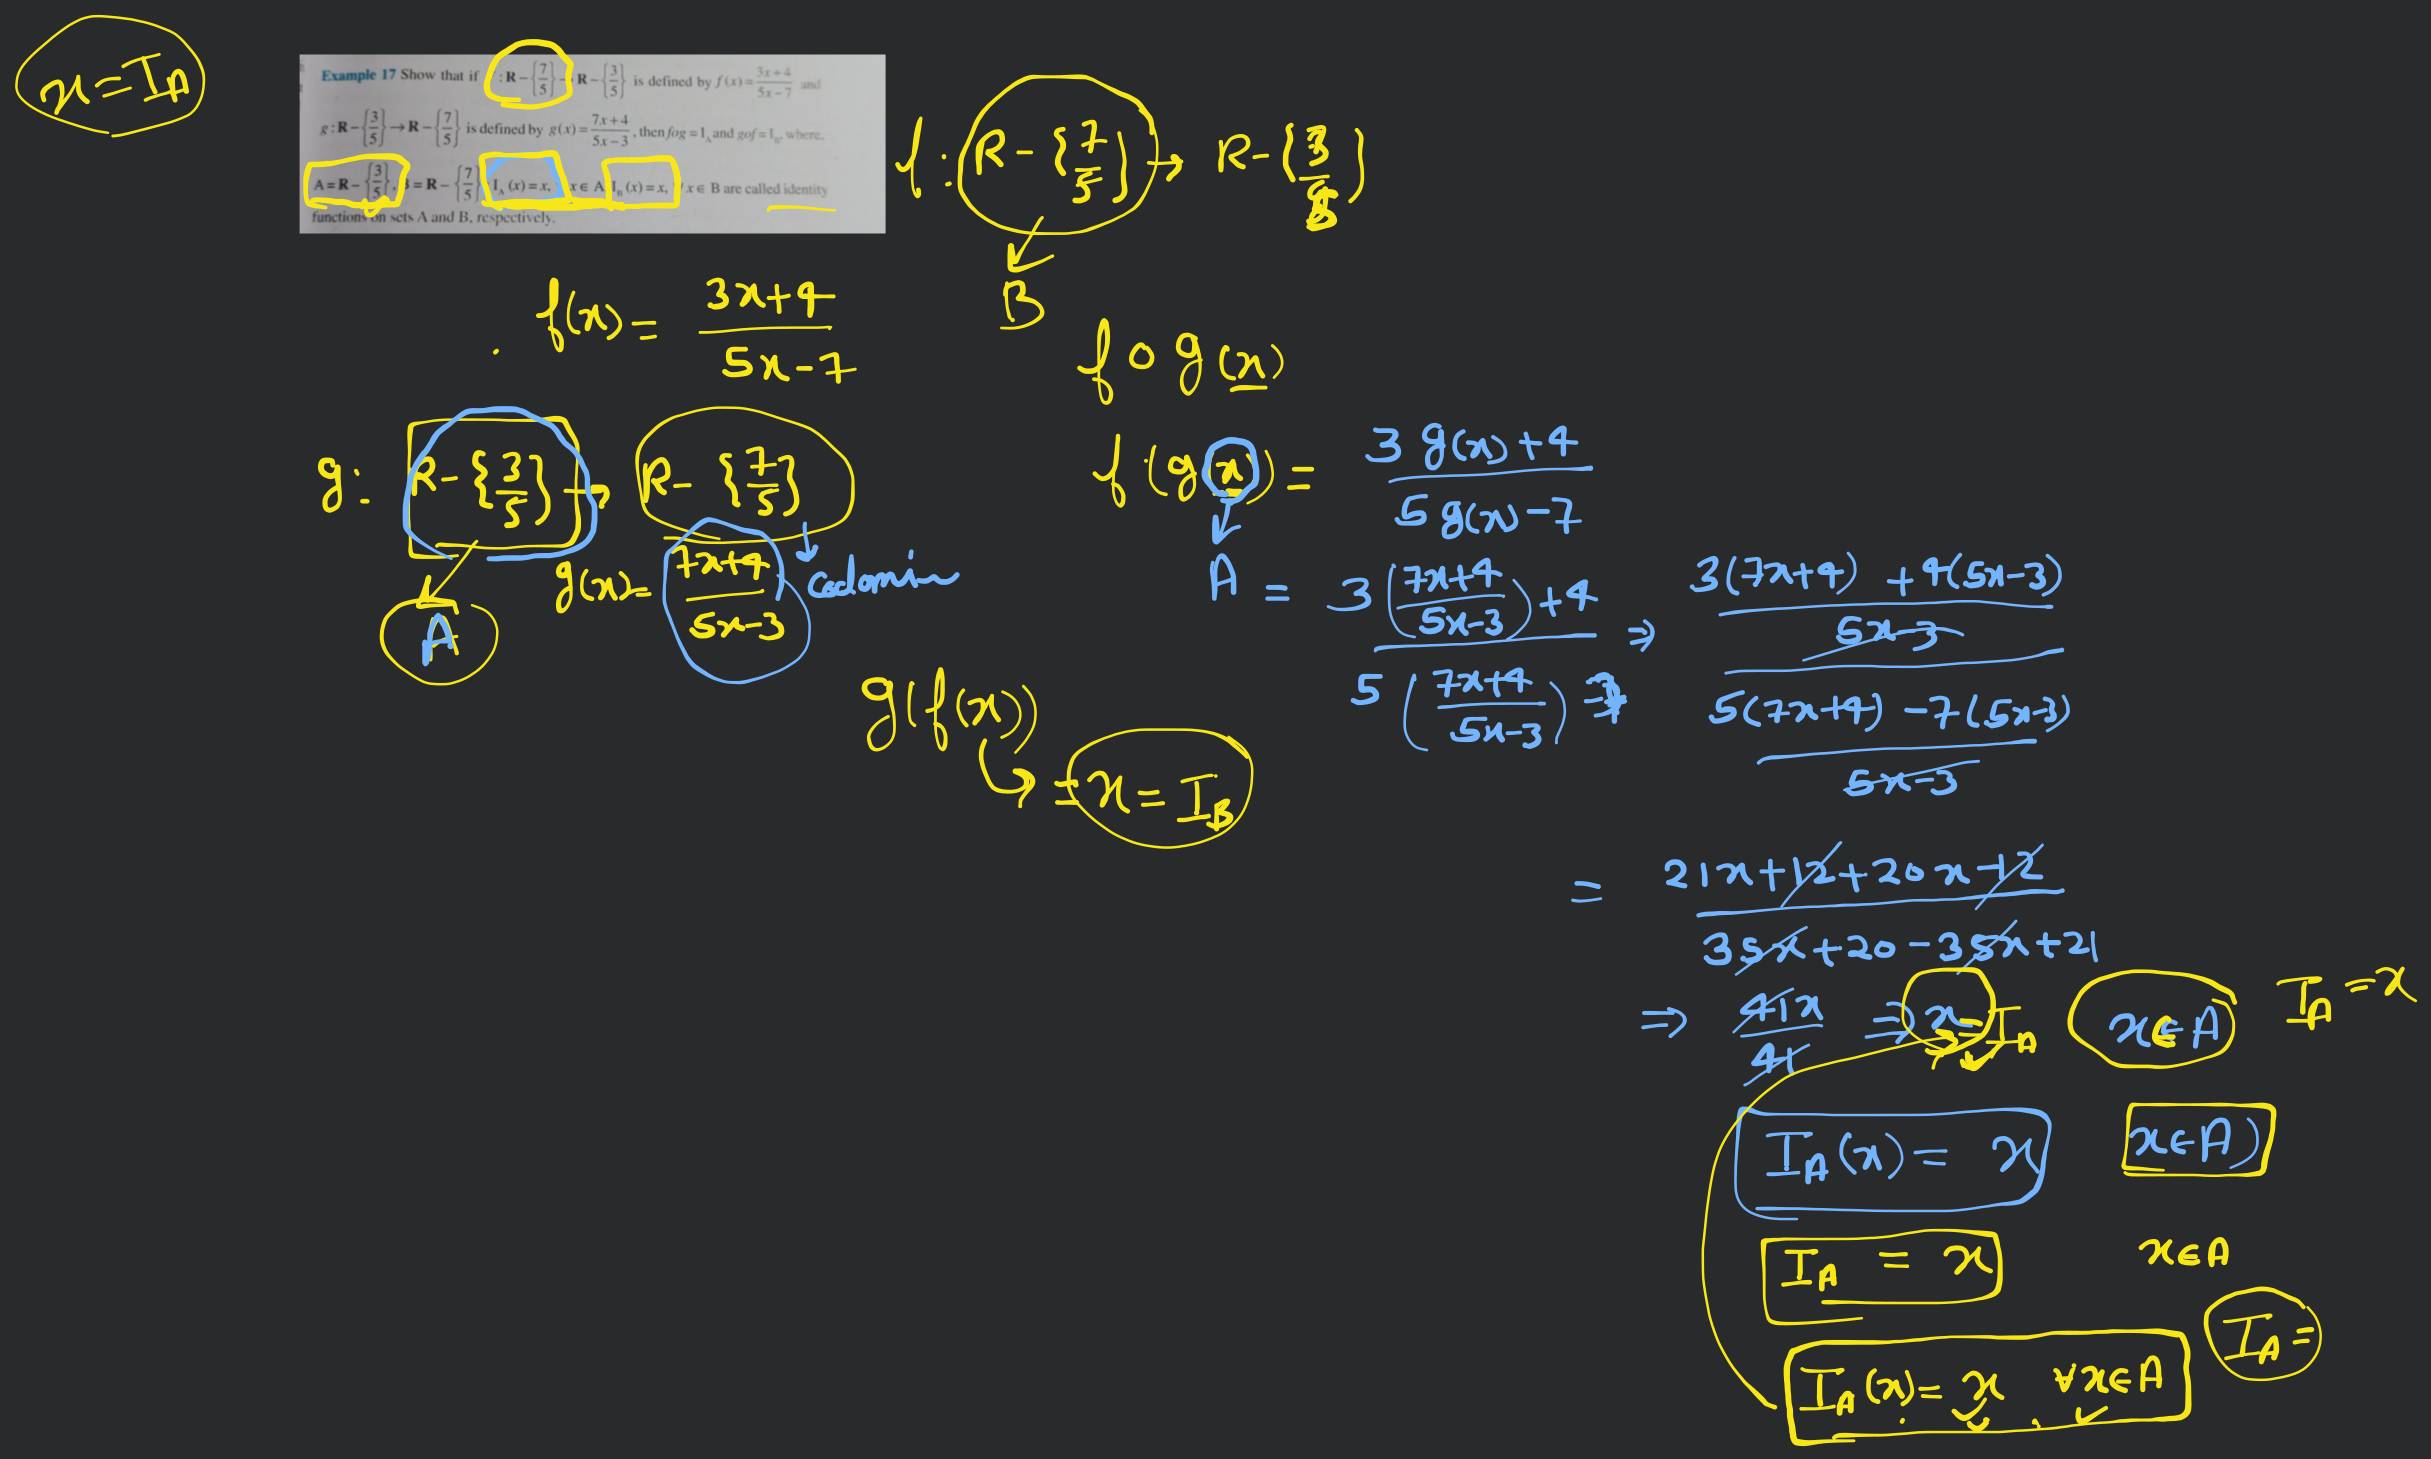 x = I_A
Example 17 Show that if : R – {7/5} R – {3/5} is defined by f(x) = (3x+4)/(5x–7) and
g : R – {3/5} → R – {7/5} is defined by g(x) = (7x+4)/(5x–3), then fog = I_A and gof = I_B, where,
A = R – {3/5}, B = R – {7/5} I_A (x) = x, x ∈ A I_B (x) = x, ∀ x ∈ B are called identity
functions on sets A and B, respectively.
f : R – {7/5} → R – {3/5}
B
f(x) = (3x+4)/(5x–7)
f o g(x)
g: R – {3/5} → R – {7/5}
A
g(x) = (7x+4)/(5x–3)
Codomain
f(g(x)) = (3 g(x) + 4)/(5 g(x) – 7)
A
= (3((7x+4)/(5x–3)) + 4)/(5((7x+4)/(5x–3)) – 7) ⇒ ((3(7x+4) + 4(5x–3))/(5x–3))/((5(7x+4) – 7(5x–3))/(5x–3))
g(f(x))
= x = I_B
= (21x + 12 + 20x – 12)/(35x + 20 – 35x + 21)
⇒ 41x/41 ⇒ x = I_A x ∈ A I_A = x
I_A(x) = x x ∈ A)
I_A = x x ∈ A
I_A =
I_A(x) = x ∀x ∈ A